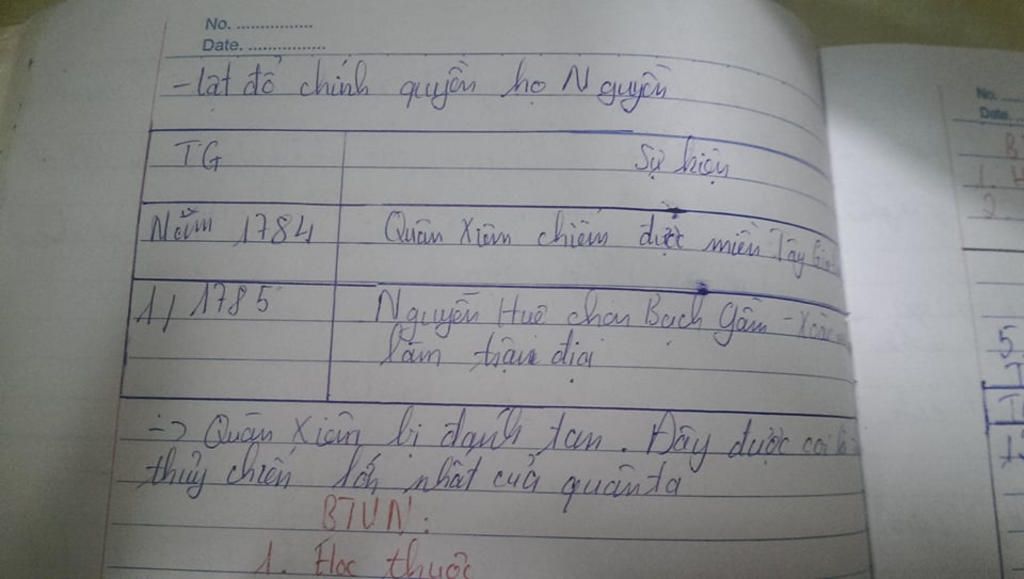 No. ................
Date. ................
- lật đổ chính quyền họ Nguyễn
TG Sự kiện
Năm 1784 Quân Xiêm chiếm được miền Tây
1/ 1785 Nguyễn Huệ chọn Bạch Gầm -
làm trận địa
-> Quân Xiêm bị đánh tan. Đây được coi là
thủy chiến lớn nhất của quân ta
BTVN:
1. Học thuộc
No.
Date.
B
1. H
2.
5